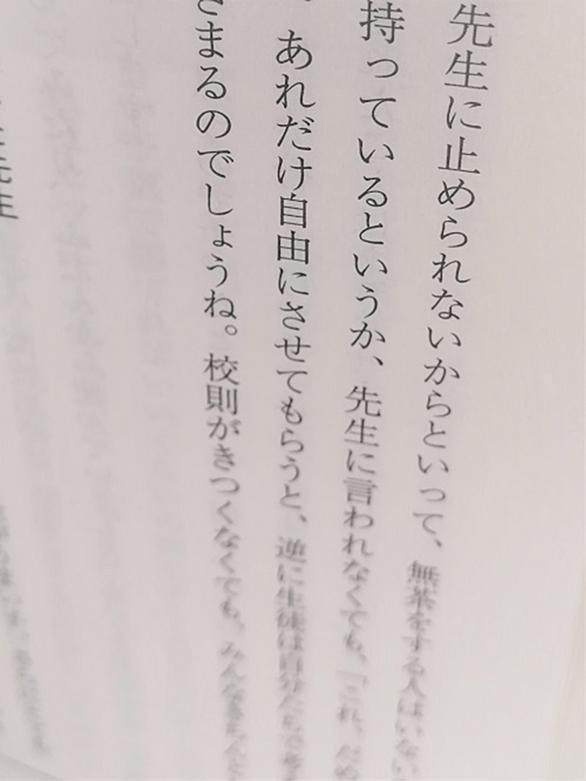 先生に止められないからといって、無茶をする人はいない
持っているというか、先生に言われなくても、「これ、だめ
あれだけ自由にさせてもらうと、逆に生徒は自分たちで考
まるのでしょうね。校則がきつくなくても、みんなきちんと
先生